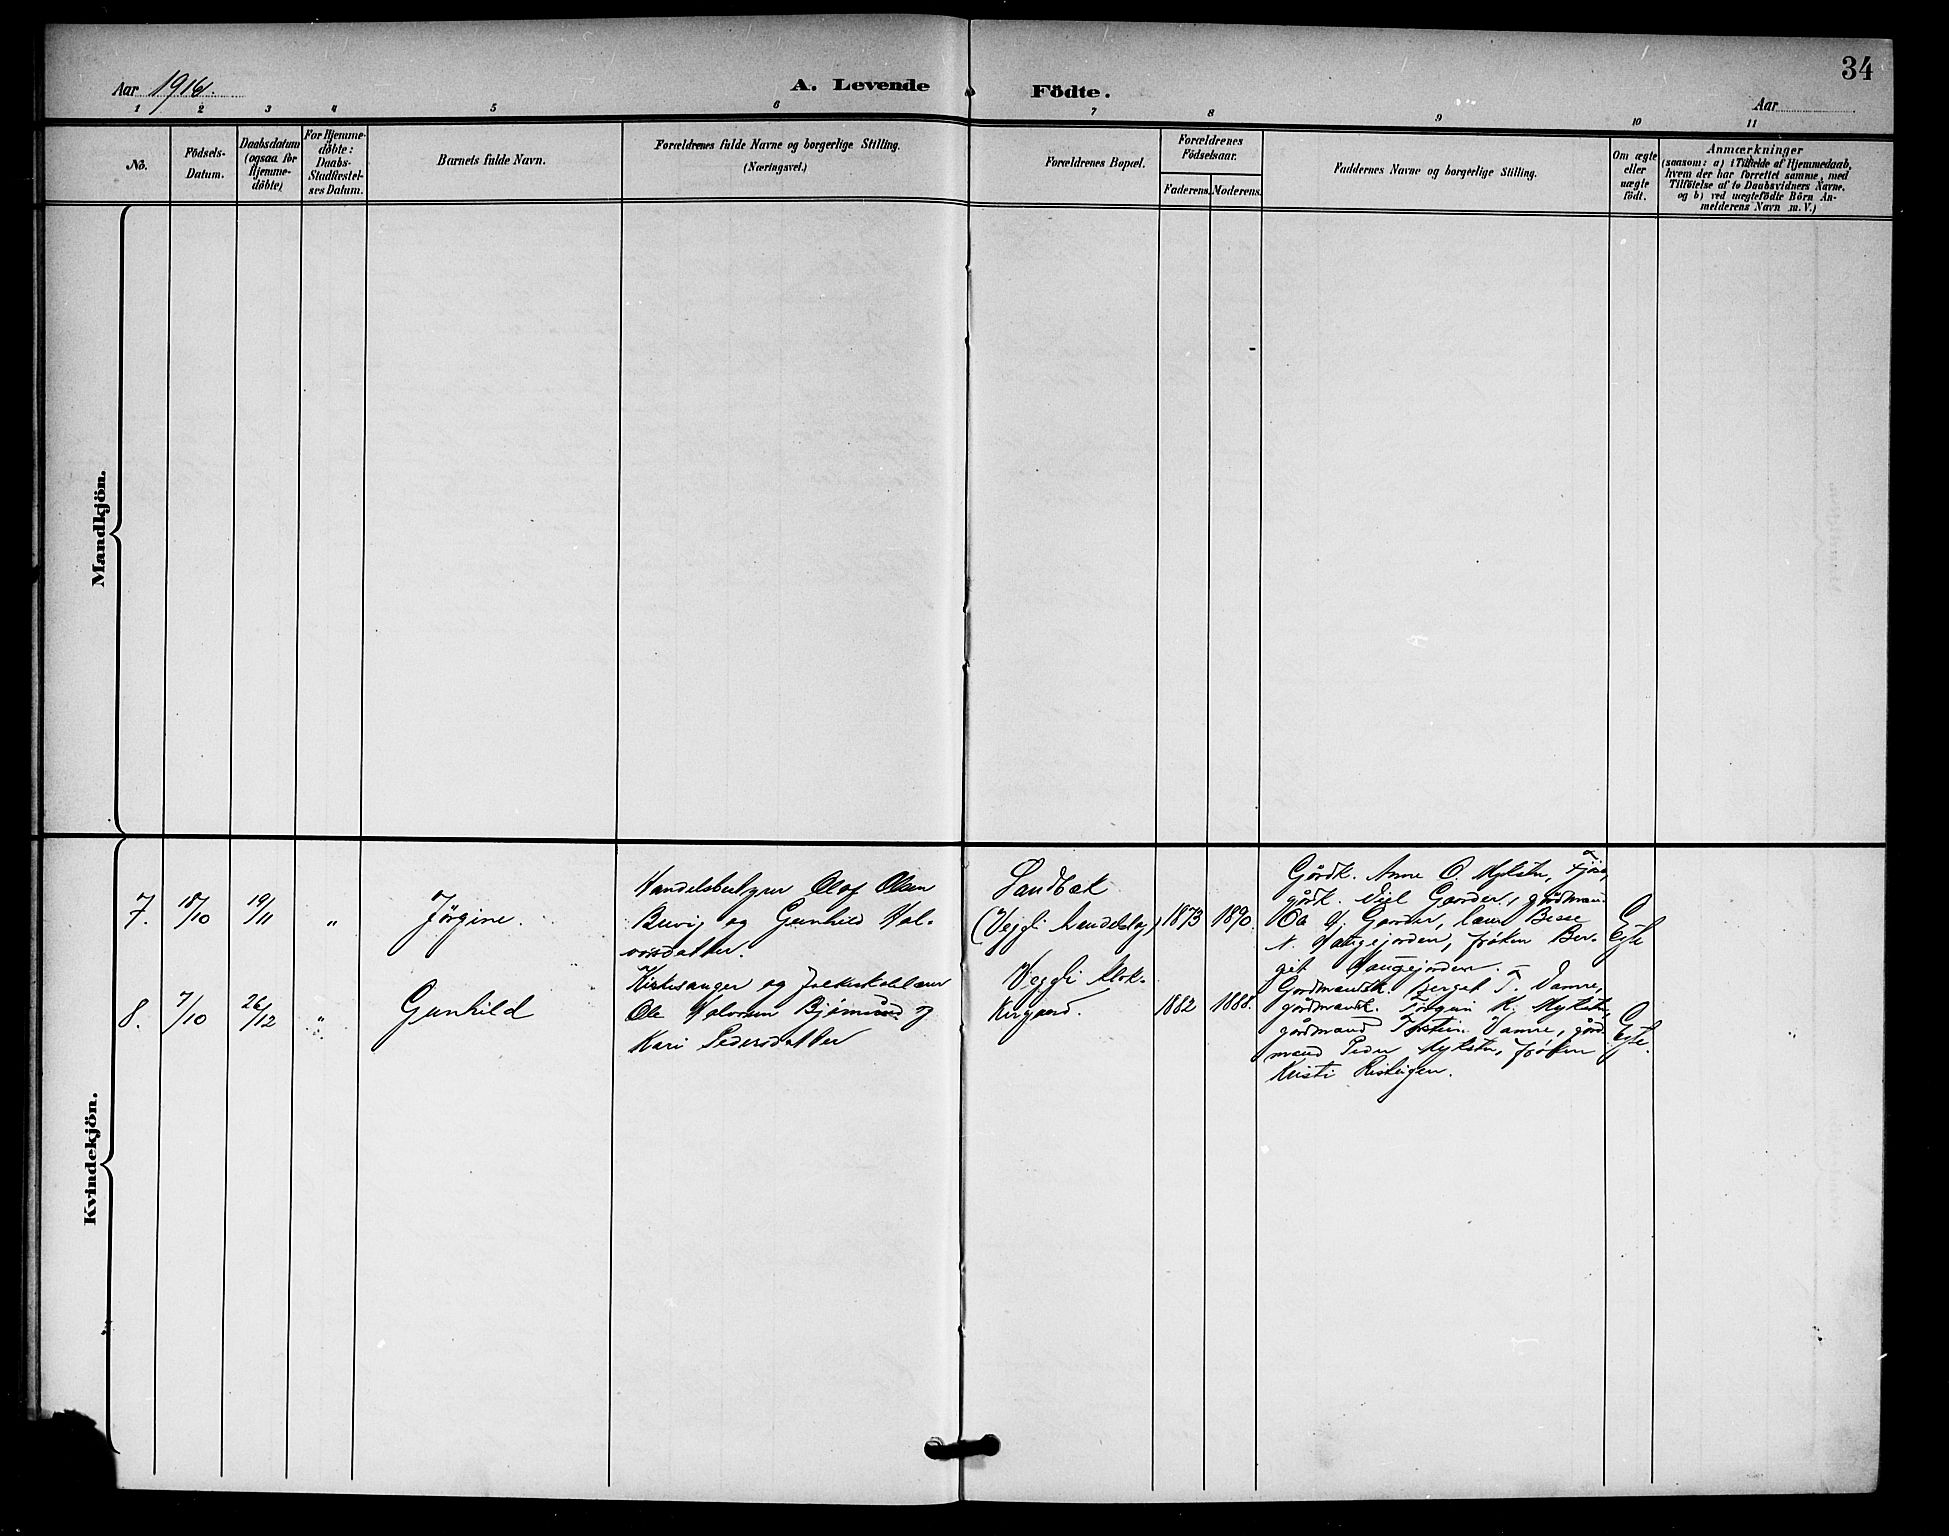 34
Aar 1916.
A. Levende Födte.
Aar
1 2 3 4 5 6 7 8 9 10 11
No.
Födsels-
Datum.
Daabsdatum
(ogsaa for
Hjemme-
döbte)
For Hjemme-
döbte:
Daabs-
Stadfæstel-
ses Datum.
Barnets fulde Navn.
Forældrenes fulde Navne og borgerlige Stilling.
(Næringsvei.)
Forældrenes Bopæl.
Forældrenes
Födselsaar.
Faderens. Moderens.
Faddernes Navne og borgerlige Stilling.
Om ægte
eller
uægte
födt.
Anmærkninger
(saasom: a) i Tilfælde af Hjemmedaab,
hvem der har forrettet samme, med
Tilföielse af to Daabsvidners Navne.
og b) ved uægtefödte Börn An-
melderens Navn m. V.)
Mandkjön.
Kvindekjön.
7.
18/10
19/11
"
Jörgine.
Handelsbestyrer Olaf Olsen
Buvij og Gunhild Hal-
vorsdatter.
Sandbæk
(Veggli handelslag)
1873
1890.
Gårdk. Anne O. Myksti,
gårdk. Garder, gårdmand
Garder,
Haugejorden, fröken Ber-
git Haugejorden.
Egte
8.
7/10
26/12
"
Gunhild
Kirkesanger og folkeskolelærer
Ole Halvorsen Björnsund og
Kari Pedersdatter
Veggli klok-
kergaard.
1882
1888.
Gårdmandsk. Berget T. Vamre,
gårdmandsk. Torgun K. Mykstu,
gårdmand Torstein Vamre, gård-
mand Peder Mykstu, fröken
Kristi Risteigen.
Egte.